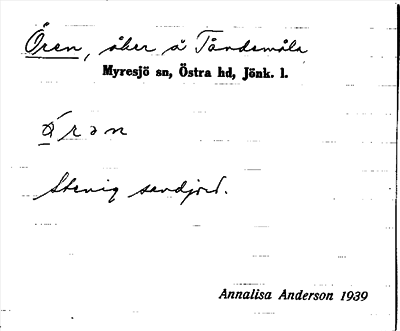 Ören, åker å Tåndsmåla
Myresjö sn, Östra hd, Jönk. l.
ö̀ r ə n
Stenig sandjord.
Annalisa Anderson 1939